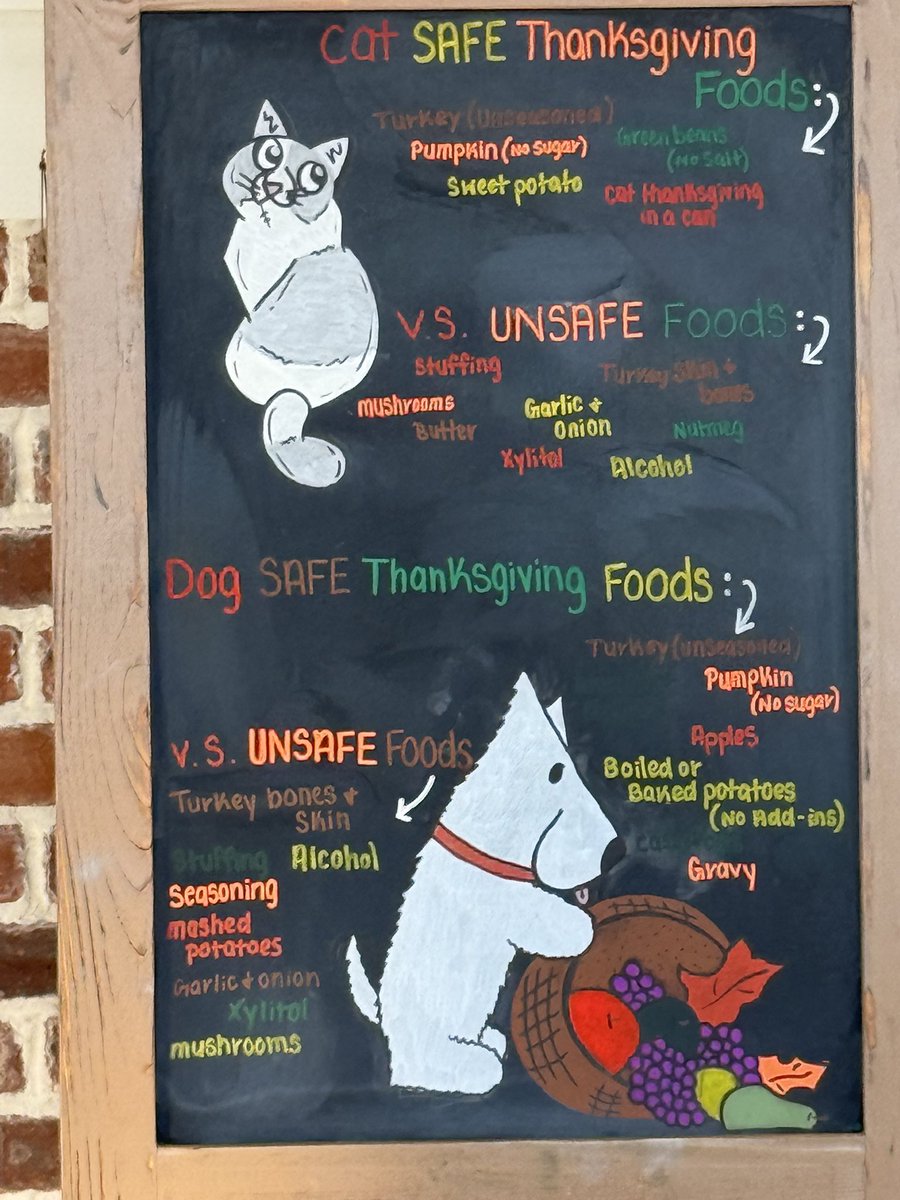 Cat SAFE Thanksgiving
Foods:
Turkey (Unseasoned)
Pumpkin (No sugar)
Green beans
(No salt)
Sweet potato
Cat Thanksgiving
in a can
V.S. UNSAFE Foods:
Stuffing
Turkey Skin +
bones
mushrooms
Garlic +
Onion
Butter
Nutmeg
Xylitol
Alcohol
Dog SAFE Thanksgiving Foods:
Turkey (unseasoned)
Pumpkin
(No sugar)
Apples
Boiled or
Baked potatoes
(No Add-ins)
Gravy
V.S. UNSAFE Foods
Turkey bones +
Skin
Stuffing
Alcohol
Seasoning
mashed
potatoes
Garlic + onion
Xylitol
mushrooms